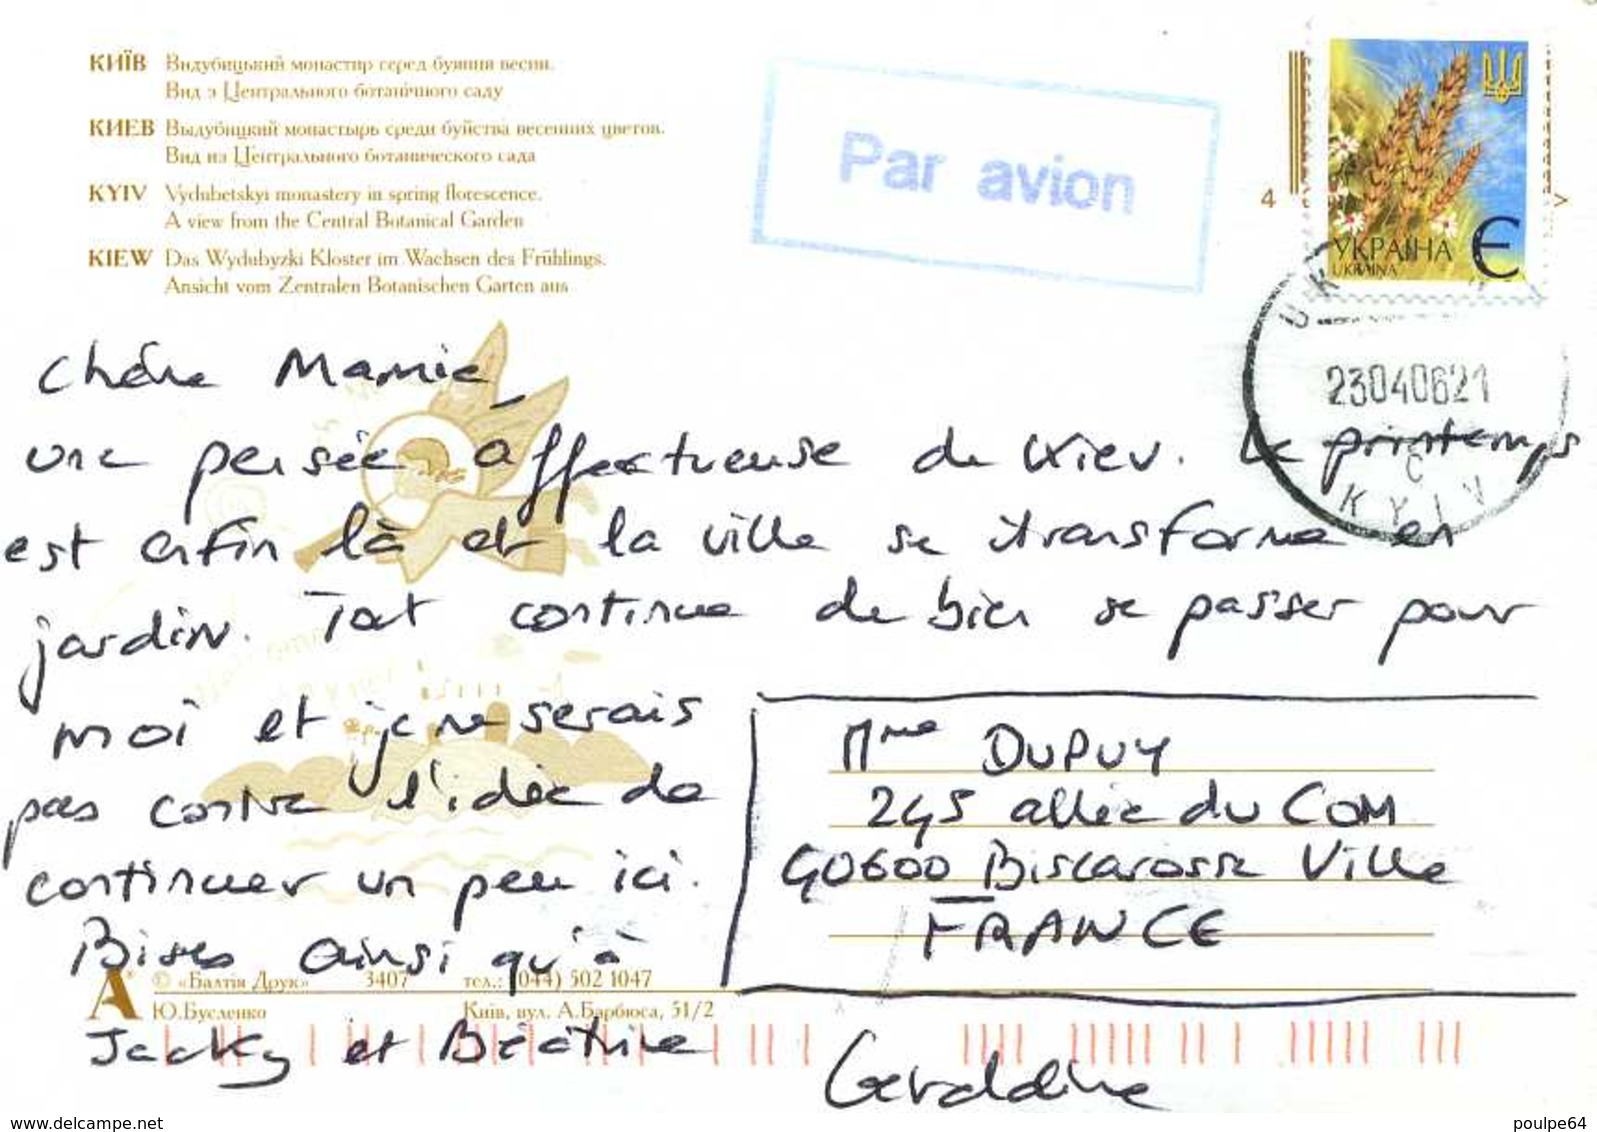 КИЇВ Видубицький монастир серед буяння весни.
Вид з Центрального ботанічного саду
КИЕВ Выдубицкий монастырь среди буйства весенних цветов.
Вид из Центрального ботанического сада
KYIV Vydubetskyi monastery in spring florescence.
A view from the Central Botanical Garden
KIEW Das Wydubyzki Kloster im Wachsen des Frühlings.
Ansicht vom Zentralen Botanischen Garten aus
Par avion
4
V
УКРАЇНА
UKRAINA
Є
23040621
C
KYIV
Chère Mamie
une pensée affectueuse de Kiev. Le printemps
est enfin là et la ville se transforme en
jardin. Tout continue de bien se passer pour
moi et je ne serais
pas contre l'idée de
continuer un peu ici.
Bises ainsi qu'à
Jacky et Béatrice
Géraldine
Mme DUPUY
245 allée du COM
40600 Biscarosse Ville
FRANCE
А® © «Балтія Друк» 3407 тел.: (044) 502 1047
Ю.Бусленко Київ, вул. А.Барбюса, 51/2
www.delcampe.net
poulpe64